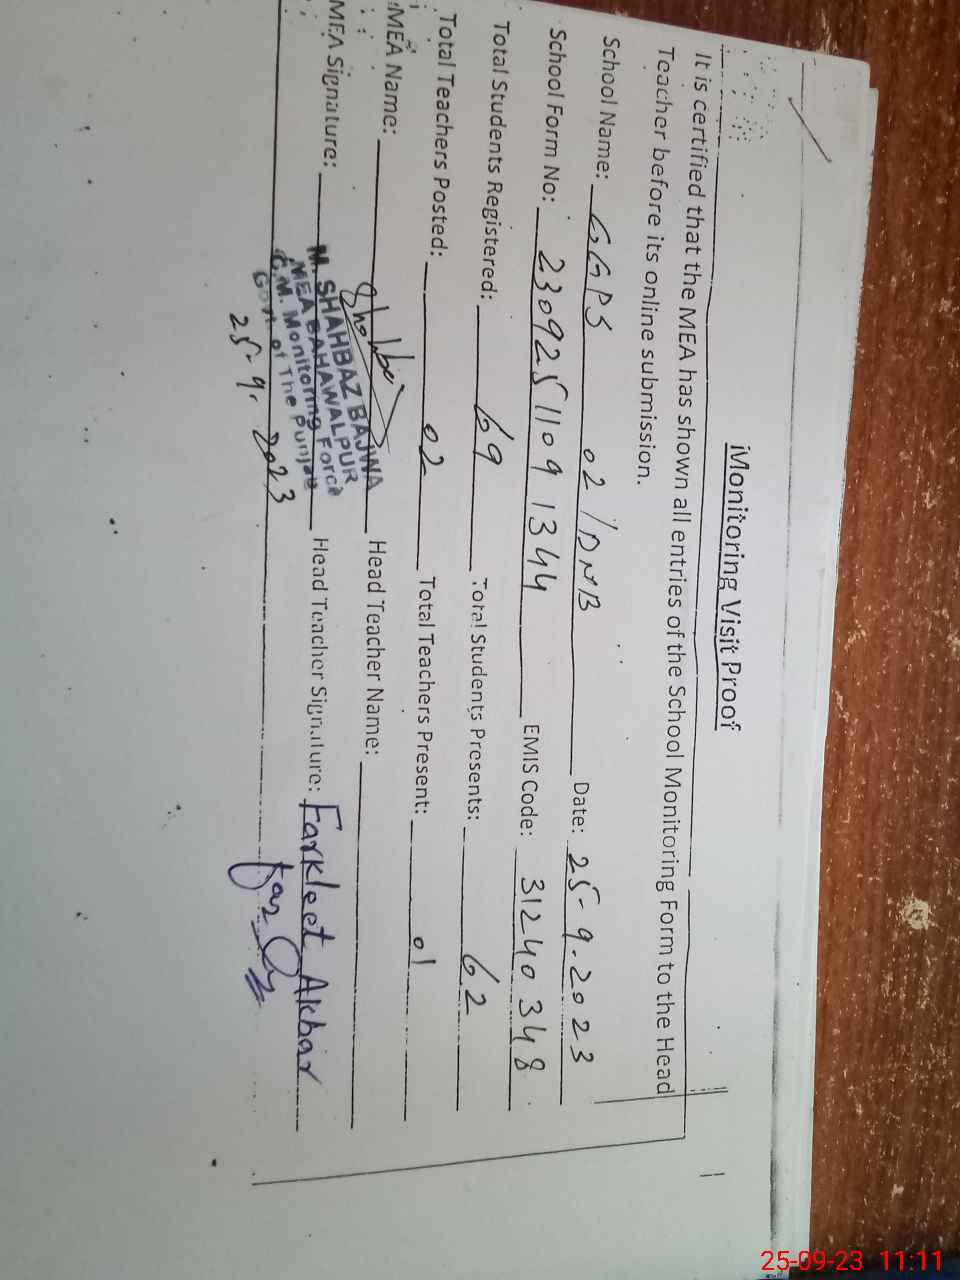 Monitoring Visit Proof
It is certified that the MEA has shown all entries of the School Monitoring Form to the Head
Teacher before its online submission.
School Name: GGPS 02/DNB Date: 25-9-2023
School Form No: 23092511091344 EMIS Code: 31240348
Total Students Registered: 69 Total Students Presents: 62
Total Teachers Posted: 02 Total Teachers Present: 01
MEA Name: Head Teacher Name:
MEA Signature: Head Teacher Signature: Farkleet Akbar
M. SHAHBAZ BAJWA
MEA BAHAWALPUR
C.M. Monitoring Force
Govt of The Punjab
25-9-2023
25-09-23 11:11